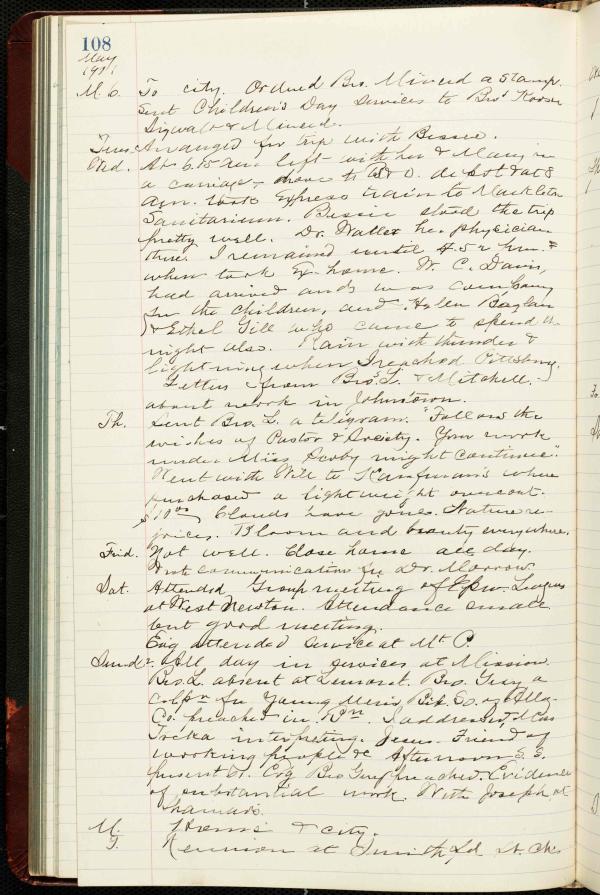 108
May
1911
M. 6. To city. Ordered Bro. Minced a Stamp.
Sent Children's Day Services to Bros
& Minced.
Tues. Arranged for trip with Bessie.
Wed. At 6.15 am left with her & Mary in
a carriage, drove to B & O. depot & at 8
Am. took Express train to Markleton
Sanitarium. Bessie stood the trip
pretty well. Dr. Walter her physician
there. I remained until 4.52 P.m. &
when took Ex. home. W. C. Davis,
had arrived and was company
for the children, and Helen
& Ethel Gill who came to spend the
night also. Rain with thunder &
lightning when I reached Pittsburg.
Letters from Bros. L. & Mitchell.
about work in Johnstown.
Th. Sent Bro. L. a telegram. "Follow the
wishes of Pastor & Society. Your work
under Miss might continue."
Went with Will to Kaufman's where
purchased a light weight overcoat.
Clouds have gone. Nature re-
joices. Bloom and beauty everywhere.
Frid. Not well. Close home all day.
communication for Dr. Morrow.
Sat. Attended Group meeting of Epw. Leagues
at West Newton. Attendance small
but good meeting.
Evg attended service at Mt. P.
Sund. All day in services at Mission
Bro. L. absent at Lemont. Bro. Guy a
colpr for Young Men's Bib. So. of Alle.
Co. preached in I addressed
interpreting. Jesus Friend of
working people &c Afternoon S. S.
present Evg Bro Guy preached. Evidence
of substantial work. With Joseph at
M. Home & city.
T. Reunion at Smithfld St. Ch.